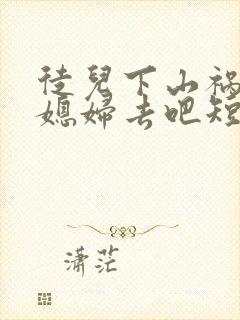 徒兒下山祸
媳婦去吧短
潇茫